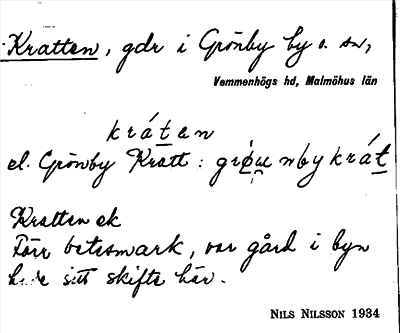 Kratten, gdr i Grönby by o. sn,
Vemmenhögs hd, Malmöhus län
krát̲en
el. Grönby Kratt: grǿu̯nbykrát̲
Kratten ek
Förr betesmark, var gård i byn
hade sitt skifte här.
NILS NILSSON 1934